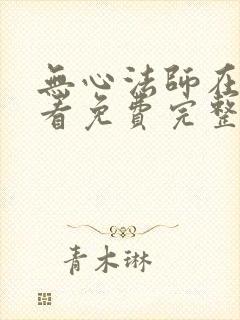 無心法師在
看免費完整
青木琳